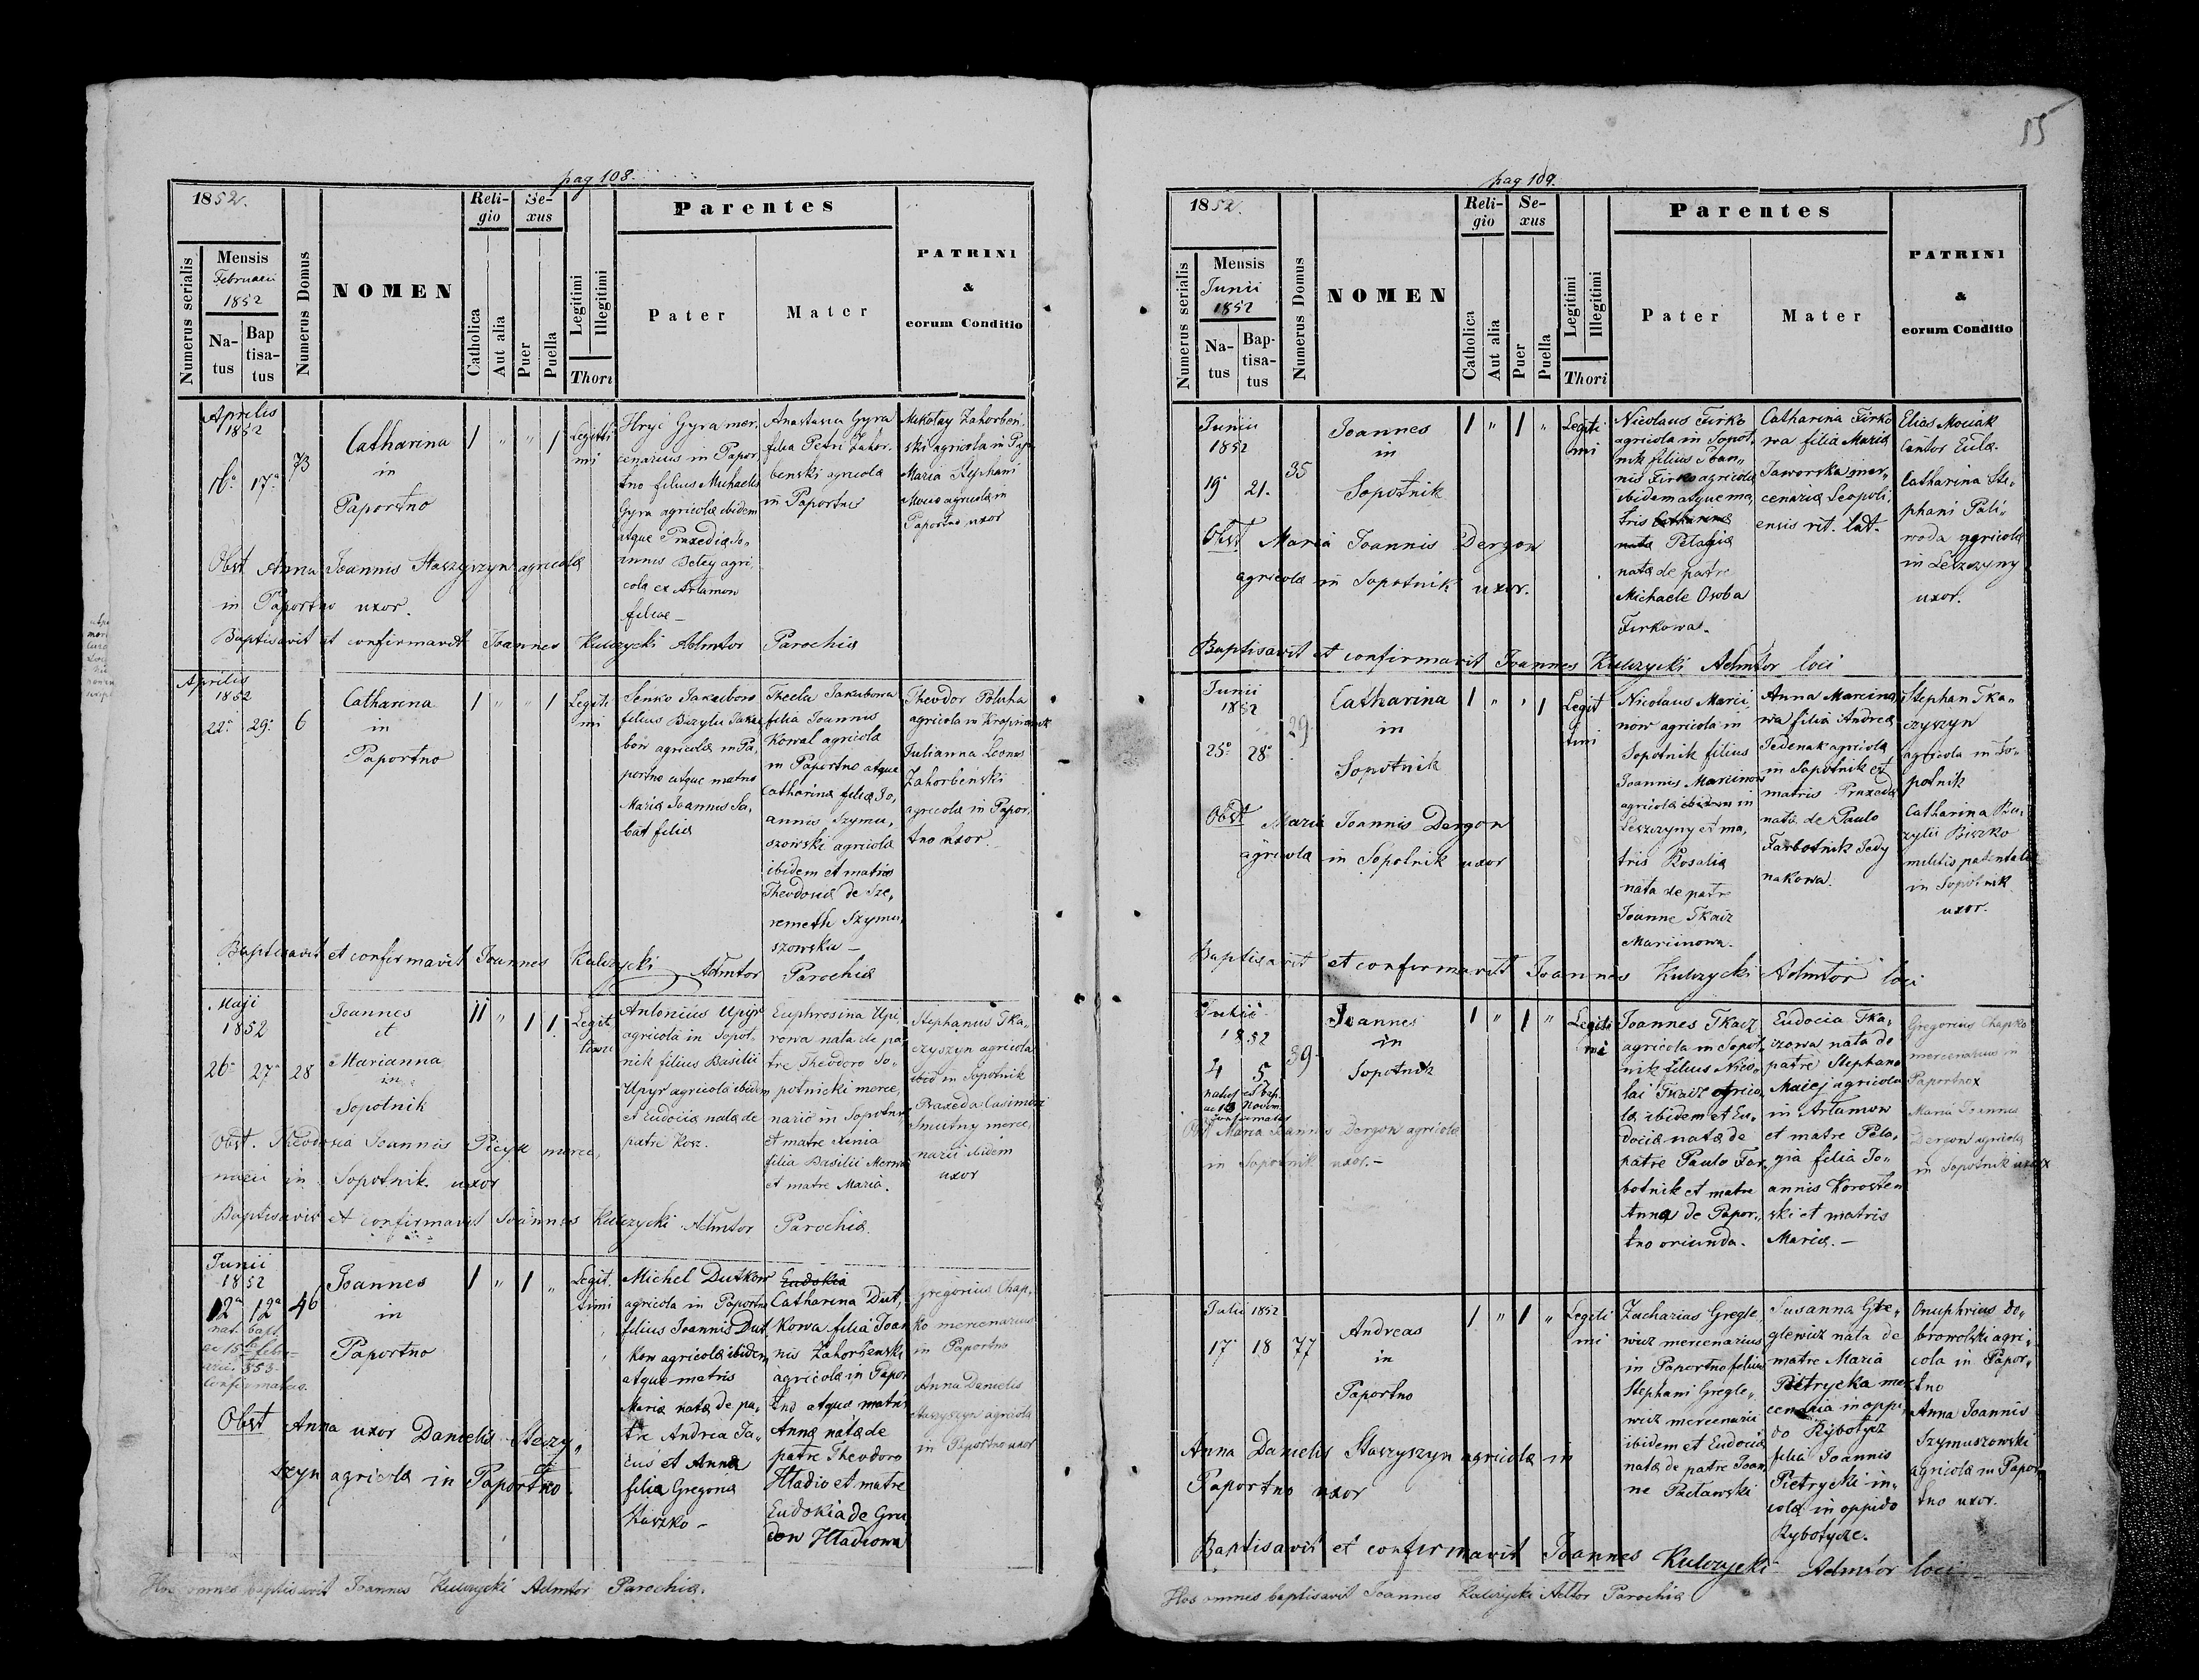 55
pag 108.
1852.
Numerus serialis
Mensis
Februarii
1852
Na-
tus
Bap
tisa-
tus
Numerus Domus
NOMEN
Reli-
gio
Catholica
Aut alia
Se-
xus
Puer
Puella
Legitimi
Illegitimi
Thori
Parentes
Pater
Mater
PATRINI
&
eorum Conditio
Aprilis
1852
16a 17a 73
Catharina
in
Paportno
1 " " 1
Legiti
mi
Hryć Gyra mer,
cenarius in Papor
tno filius Michaelis
Gyra agricola ibidem
atque Praxedia Jo,
annis Beley agri,
cola ex Artamow
filiae
Anastasia Gyra
filia Petri Zahor.
benski agricola
in Paportno
Mikołay Zahorben,
ski agricola in Pap
Maria Stephani
agricola in
Paportno uxor
Obst Anna Joannis Staszyszyn agricola
in Paportno uxor.
Baptisavit et confirmavit Joannes Kulczycki Admtor Parochia
Aprilis
1852
22a 29a 6
Catharina
in
Paportno
1 " " 1
Legiti
mi
Senko Jakubow
filius Bazylii Jaku
bow agricola in Pa,
portno atque matris
Maria Joannis Sa,
bat filia
Thecla Jakubowa
filia Joannis
Kowal agricola
in Paportno atque
Catharina filia Jo,
annis Szymu,
szowski agricola
ibidem et matris
Theodosia de Sze,
remeth Szymu,
szowska
Theodor Poluha
agricola in Kropiwnik
Julianna Leonis
Zahorbenski
agricola in Papor,
tno uxor.
Baptisavit et confirmavit Joannes Kulczycki Admtor Parochia
Maji
1852
26a 27a 28
Joannes
et
Marianna
in
Sopotnik
11 " 1 1
Legit
timi
Antonius Upyr
agricola in Sopot,
nik filius Basilii
Upyr agricola ibidem
et Eudocia nata de
patre Korz.
Euphrosina Upi
rowa nata de pa
tre Theodoro So,
potnicki merce,
nario in Sopotnik
et matre Xenia
filia Basilii
et matre Maria.
Stephanus Tka,
czyszyn agricola
ibid in Sopotnik
Praxeda Casimiri
Smutny merce,
narii ibidem
uxor
Obst. Theodosia Joannis merce,
narii in Sopotnik uxor
Baptisavit et confirmavit Joannes Kulczycki Admtor Parochia.
Junii
1852
12a 12a 46
nat. bapt
ac 15 febru
arii 853
Confirmatus.
Joannes
in
Paportno
1 " 1 "
Legit.
timi
Michel Dutkow
agricola in Paportno
filius Joannis Dut
kow agricola ibidem
atque matris
Maria nata de pa,
tre Andrea Ja,
cuś et Anna
filia Gregoria
Kaszko
Eudokia
Catharina Dut,
kowa filia Joan
nis Zahorbenski
agricola in Papor
tno atque matris
Anna nata de
patre Theodoro
Hladio et matre
Eudokia de Gru
dow Hladiowa
gregorius Chap,
ko mercenarius
in Paportno
Anna Danielis
Staszyszyn agricola
in Paportno uxor
Obst Anna uxor Danielis Staszy,
szyn agricola in Paportno.
Hos omnes baptisavit Joannes Kulczycki Admtor Parochia.
pag 109.
1852.
Numerus serialis
Mensis
Junii
1852
Na-
tus
Bap-
tisa-
tus
Numerus Domus
NOMEN
Reli-
gio
Catholica
Aut alia
Se-
xus
Puer
Puella
Legitimi
Illegitimi
Thori
Parentes
Pater
Mater
PATRINI
&
eorum Conditio
Junii
1852
19a 21. 35
Joannes
in
Sopotnik
1 " 1 "
Legiti
mi
Nicolaus Firko
agricola in Sopot,
nik filius Joan,,
nis Firko agricola
ibidem atque ma,
tris Catharina
nata Pelagia
nata de patre
Michaele Osoba
Firkowa.
Catharina Firko
wa filia Maria
Jaworska mer,
cenaria Leopoli,
ensis rit. lat.
Elias Mociak
Cantor Eccla.
Catharina Ste,
phani Pali,,
woda agricola
in Leszczyny
uxor.
Obst Maria Joannis Dergon
agricola in Sopotnik uxor.
Baptisavit et confirmavit Joannes Kulczycki Admtor loci
Junii
1852
25a 28a 29
Catharina
in
Sopotnik
1 " " 1
Legit
timi
Nicolaus Marci,
now agricola in
Sopotnik filius
Joannis Marcinow
agricola ibidem in
Leszczyny et ma,
tris Rosalia
nata de patre
Joanne Tkacz
Marcinowa.
Anna Marcino,
wa filia Andrea
Jedenak agricola
in Sopotnik et
matris Praxeda
nata de Paulo
Farbotnik Jedy
nakowa.
Stephan Tka,,
czyszyn
agricola in So,,
potnik
Catharina Ba,
zylii Biszko
militis patentalis
in Sopotnik
uxor.
Obst Maria Joannis Dergon
agricola in Sopotnik uxor
Baptisavit et confirmavit Joannes Kulczycki Admtor loci
Julii
1852
4 5 39
natus et bap.
ac 13 Novem.
confirmatus
Joannes
in
Sopotnik
1 " 1 "
Legiti
mi
Joannes Tkacz
agricola in Sopot,
nik filius Nico,,
lai Tkacz agrico,
la ibidem et Eu,
docia nata de
patre Paulo Far,
botnik et matre
Anna de Papor,,
tno oriunda.
Eudocia Tka,
czowa nata de
patre Stephano
Maciej agricola
in Artamow
et matre Pela,
gia filia Jo,,
annis Korosten
ski et matris
Maria.
Gregorius Chapko
mercenarius in
Paportno
Maria Joannis
Dergon agricola
in Sopotnik uxor
Obst Maria Joannis Dergon agricola
in Sopotnik uxor.
Julii 1852
17 18 77
Andreas
in
Paportno
1 " 1 "
Legiti
mi
Zacharias Gregle,
wicz mercenarius
in Paportno filius
Stephani Gregle,,
wicz mercenarii
ibidem et Eudocia
nata de patre Joan
ne Pacławski
Susanna Gre,
glewicz nata de
matre Maria
Pietrycka mer
cenaria in oppi,
do Rybotycz
filia Joannis
Pietrycki in,
cola in oppido
Rybotycze.
Onuphrius Do,,
browolski agri,
cola in Papor,,
tno
Anna Joannis
Szymuszowski
agricola in Papor,
tno uxor.
Anna Danielis Staszyszyn agricola in
Paportno uxor
Baptisavit et confirmavit Joannes Kulczycki Admtor loci
Hos omnes baptisavit Joannes Kulczycki Adtor Parochia